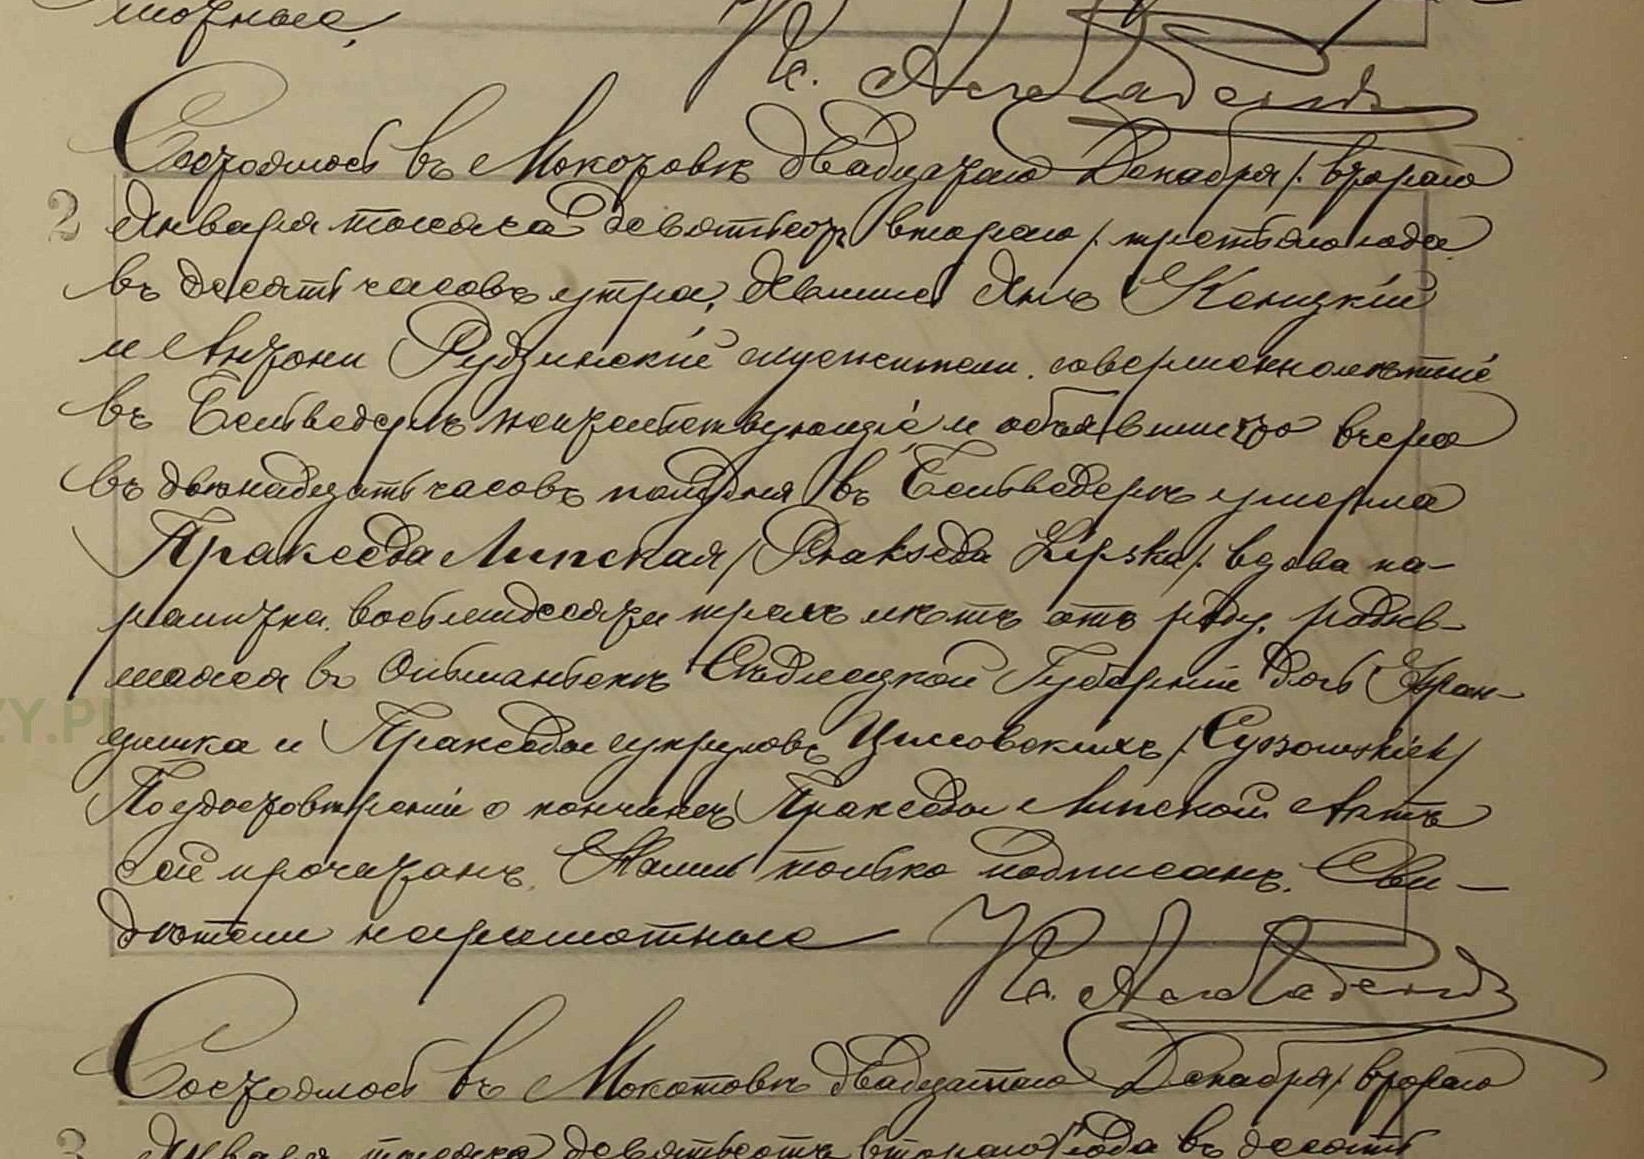 мотные,
Состоялось въ Мокотовѣ двадцатаго Декабря /: втораго
2 Января тысяча девятьсотъ втораго /: третьяго года
въ десять часовъ утра, явились Янъ Коницкій
и Антони Рудзинскій служители, совершеннолѣтніе
въ Бельведерѣ жительствующіе и объявили что вчера
въ двѣнадцать часовъ полудня въ Бельведерѣ умерла
Праксeда Липская /Prakseda Lipska/: вдова па-
ралитка, восьмидесяти трехъ лѣтъ отъ роду, родив-
шаяся въ Сѣдлецкой Губерніи дочь Фран-
цишка и Пракседы супруговъ Цысовскихъ /:Cysowskich/
По удостовѣреніи о кончинѣ Пракседы Липской Актъ
сей прочитанъ, Нами только подписанъ. Сви-
дѣтели неграмотные
Состоялось въ Мокотовѣ двадцатаго Декабря /: втораго
3 Января тысяча девятьсотъ втораго года въ десять